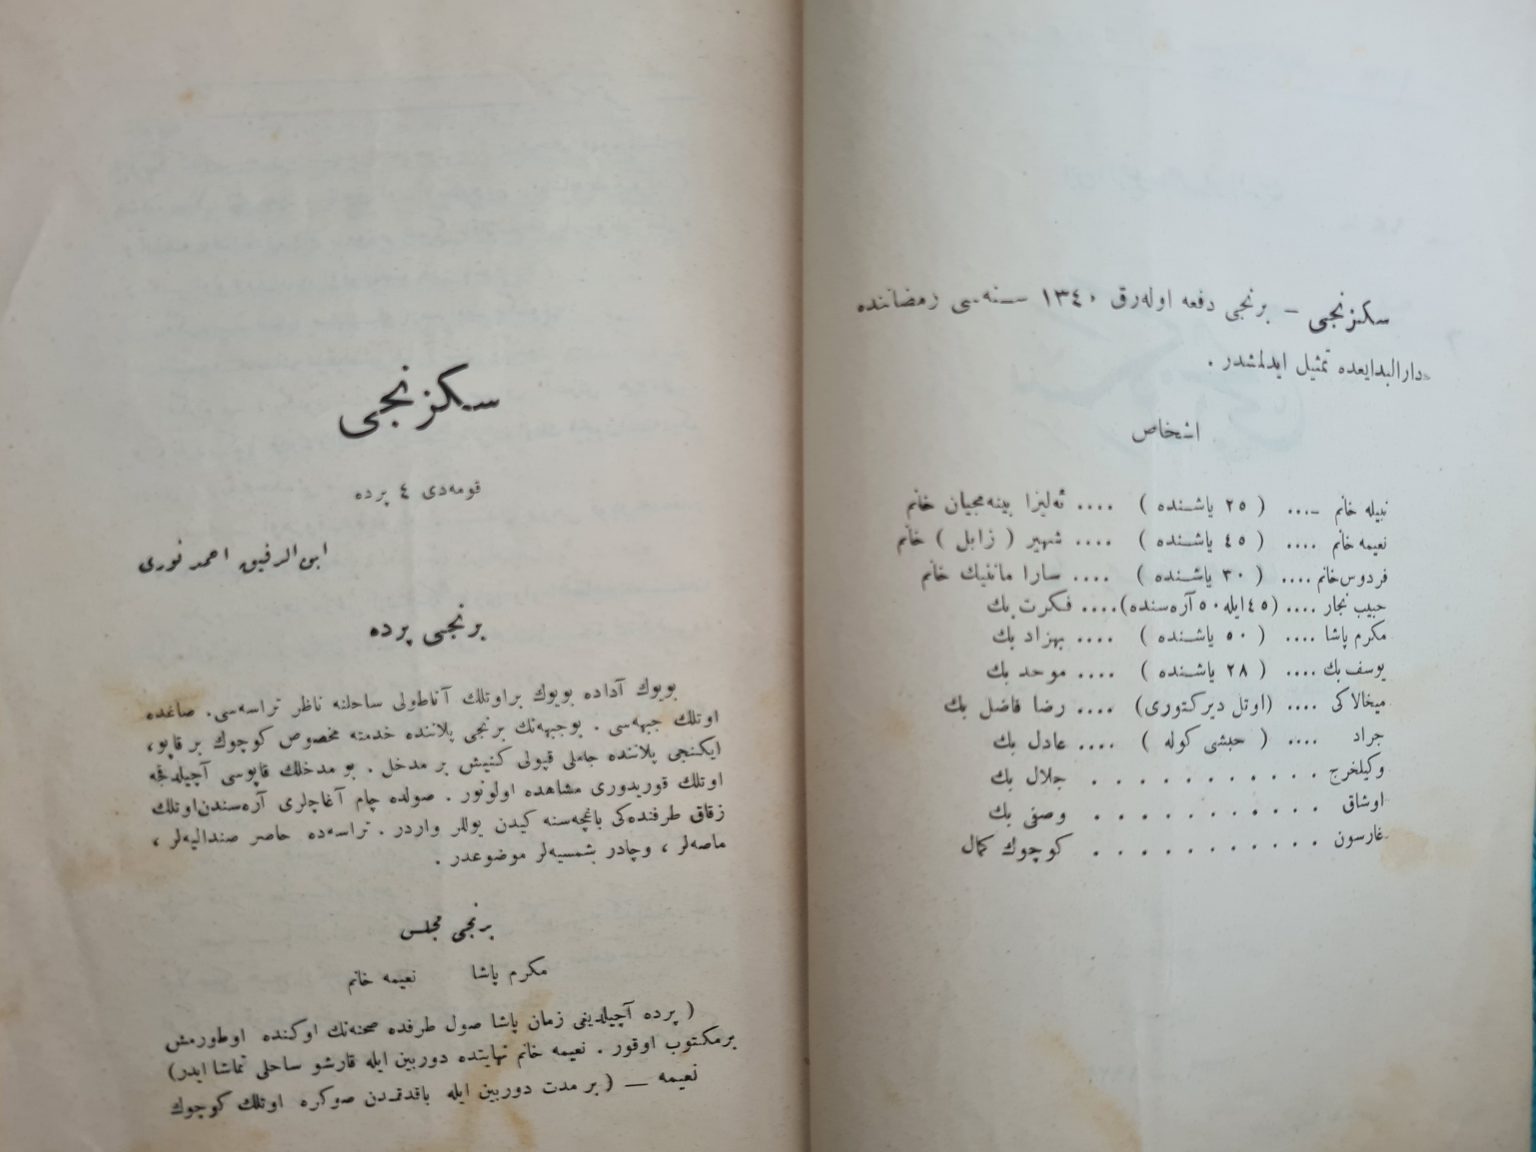 سكزنجی – برنجی دفعه اوله‌رق ١٣٤٠ سنه‌سی رمضاننده
دارالبدایعده تمثیل ایدلمشدر .
اشخاص
نبیله خانم .... ( ٢٥ یاشنده ) .... ئه‌لیزا بینه‌مجیان خانم
نعیمه خانم .... ( ٤٥ یاشنده ) .... شهپر ( زابل ) خانم
فردوس خانم .... ( ٣٠ یاشنده ) .... سارا مانفیك خانم
حبیب نجار .... (٤٥ ایله ٥٠ آره‌سنده) .... فكرت بك
مكرم پاشا .... ( ٥٠ یاشنده ) .... بهزاد بك
یوسف بك .... ( ٢٨ یاشنده ) .... موحد بك
میخالاكی .... (اوتل دیركتوری) .... رضا فاضل بك
جراد .... ( حبشی كوله ) .... عادل بك
وكیلخرج . . . . . . . . . . جلال بك
اوشاق . . . . . . . . . . وصفی بك
غارسون . . . . . . . . . . كوچوك كمال
سكزنجی
قومه‌دی ٤ پرده
ابن الرفیق احمد نوری
برنجی پرده
بویوك آداده بویوك براوتلك آناطولی ساحلنه ناظر تراسه‌سی. صاغده
اوتلك جبهه‌سی . بوجبهه‌نك برنجی پلاننده خدمته مخصوص كوچوك بر قاپو،
ایكنجی پلاننده جاملی قپولی كنیش بر مدخل . بو مدخلك قاپوسی آچیلدقجه
اوتلك قوریدوری مشاهده اولونور . صولده چام آغاچلری آره‌سندن اوتلك
زقاق طرفنده‌كی باغچه‌سنه كیدن یوللر واردر . تراسه‌ده حاصر صندالیه‌لر ،
ماصه‌لر ، وچادر شمسیه‌لر موضوعدر .
برنجی مجلس
مكرم پاشا نعیمه خانم
( پرده آچیلدیغی زمان پاشا صول طرفده صحنه‌نك اوكنده اوطورمش
برمكتوب اوقور . نعیمه خانم نهایتده دوربین ایله قارشو ساحلی تماشا ایدر)
نعیمه — ( بر مدت دوربین ایله باقدقدن صوكره اوتلك كوچوك